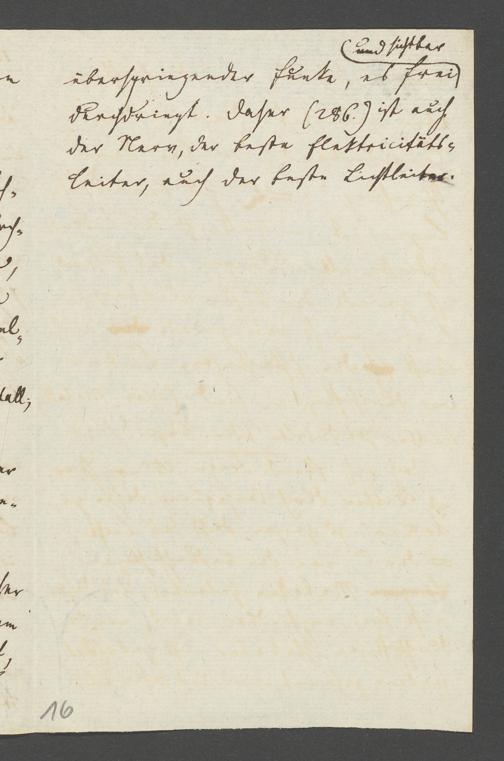 (und sichtbar
überspringender Funke, es frei)
durchdringt. Daher (286.) ist auch
der Nerv, der beste Elektricitäts-
leiter, auch der beste Lichtleiter.
tall,
16